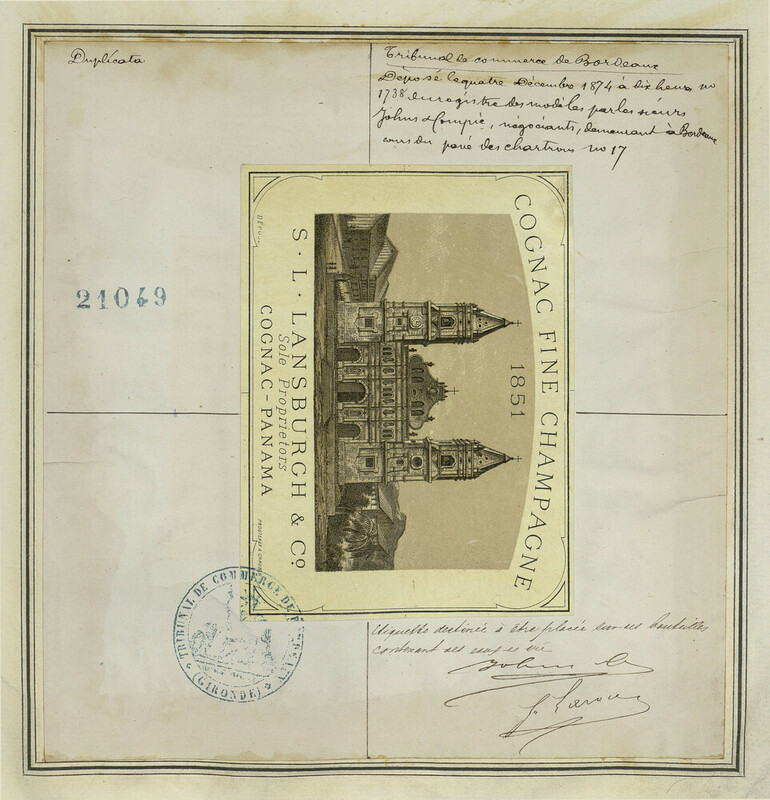 Duplicata
Tribunal de commerce de Bordeaux
Déposé le quatre Décembre 1874 à dix heures no
1738 du registre des modèles par les sieurs
Johns & Compie, négociants, demeurant à Bordeaux
cours du pavé des chartrons no 17
21049
COGNAC FINE CHAMPAGNE
1851
S. L. LANSBURGH & Co.
Sole Proprietors
COGNAC-PANAMA
TRIBUNAL DE COMMERCE DE BORDEAUX
(GIRONDE)
Etiquette destinée à être placée sur des bouteilles
contenant des eaux de vie